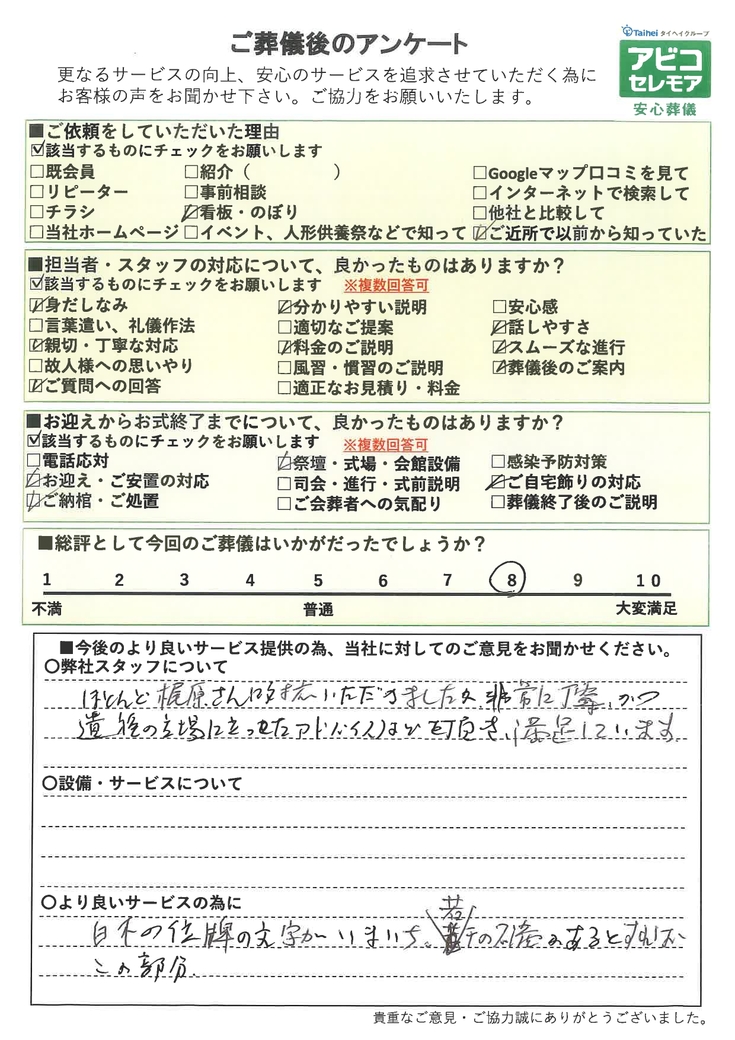 ご葬儀後のアンケート
Taihei タイヘイグループ
アビコ
セレモア
安心葬儀
更なるサービスの向上、安心のサービスを追求させていただく為に
お客様の声をお聞かせ下さい。ご協力をお願いいたします。
■ご依頼をしていただいた理由
☑該当するものにチェックをお願いします
□既会員 □紹介（　　　　　） □Googleマップ口コミを見て
□リピーター □事前相談 □インターネットで検索して
□チラシ ☑看板・のぼり □他社と比較して
□当社ホームページ □イベント、人形供養祭などで知って ☑ご近所で以前から知っていた
■担当者・スタッフの対応について、良かったものはありますか？
☑該当するものにチェックをお願いします ※複数回答可
☑身だしなみ ☑分かりやすい説明 □安心感
□言葉遣い、礼儀作法 □適切なご提案 ☑話しやすさ
☑親切・丁寧な対応 ☑料金のご説明 ☑スムーズな進行
□故人様への思いやり □風習・慣習のご説明 ☑葬儀後のご案内
☑ご質問への回答 □適正なお見積り・料金
■お迎えからお式終了までについて、良かったものはありますか？
☑該当するものにチェックをお願いします ※複数回答可
□電話応対 ☑祭壇・式場・会館設備 □感染予防対策
☑お迎え・ご安置の対応 □司会・進行・式前説明 ☑ご自宅飾りの対応
☑ご納棺・ご処置 □ご会葬者への気配り □葬儀終了後のご説明
■総評として今回のご葬儀はいかがだったでしょうか？
1 2 3 4 5 6 7 8 9 10
不満 普通 大変満足
■今後のより良いサービス提供の為、当社に対してのご意見をお聞かせください。
〇弊社スタッフについて
ほとんど梶原さんに対応いただきましたが、非常に丁寧、かつ
遺族の立場に立ったアドバイスなどを頂き、満足しています。
〇設備・サービスについて
〇より良いサービスの為に
白木の位牌の文字がいまいち。若干の不満があるとすれば
この部分。
貴重なご意見・ご協力誠にありがとうございました。